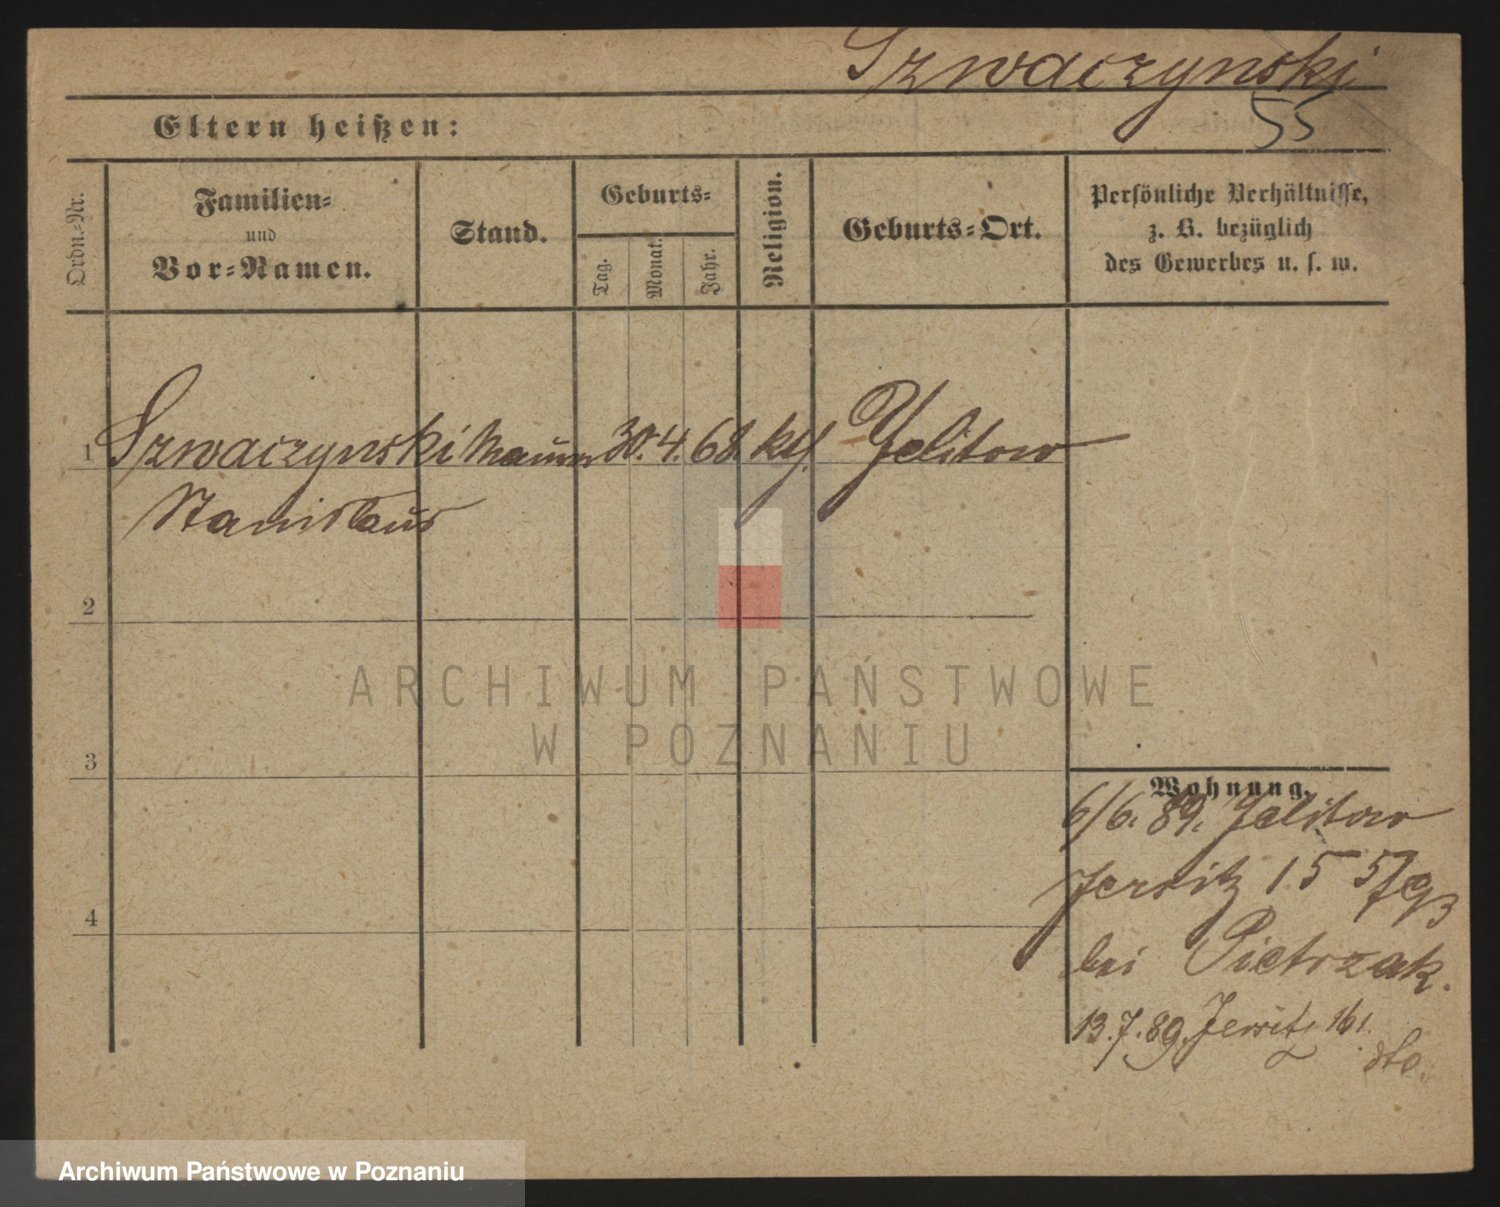 Szwaczynski
55
Eltern heißen:
Ordn.-Nr.
Familien-
und
Vor-Namen.
Stand.
Geburts-
Tag.
Monat.
Jahr.
Religion.
Geburts-Ort.
Persönliche Verhältnisse,
z. B. bezüglich
des Gewerbes u. s. w.
1 Szwaczynski Maurer 30. 4. 68. kth. Jelitowo
Stanislaus
2
3
4
ARCHIWUM PAŃSTWOWE
W POZNANIU
Wohnung.
6/6. 89. Jelitow
Jersitz 15
bei Pietrzak.
13.7.89. Jersitz 161.
Archiwum Państwowe w Poznaniu